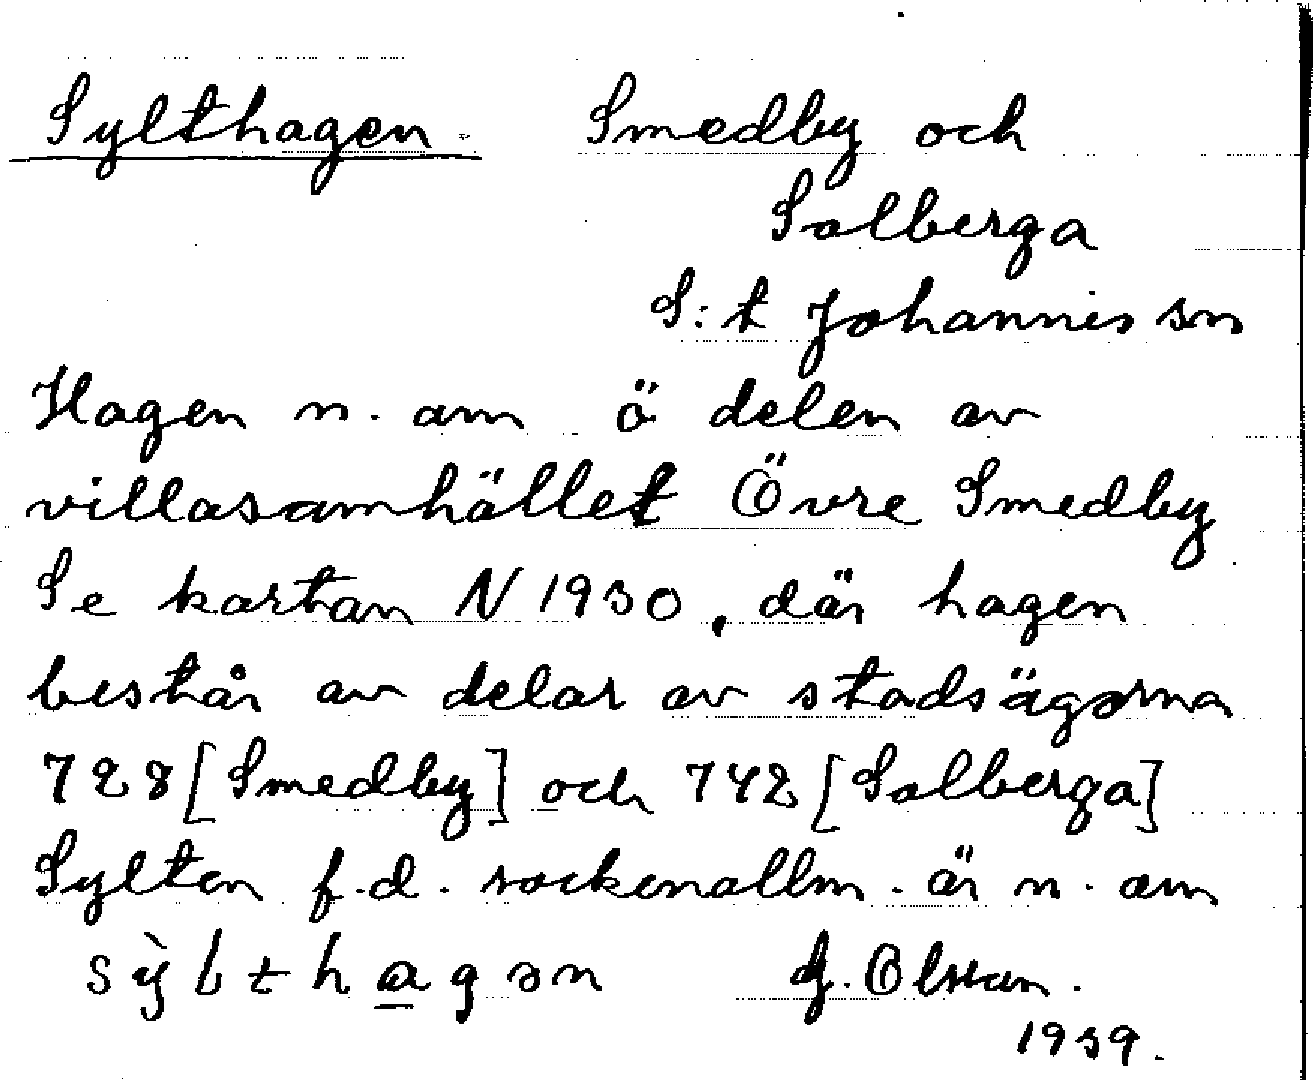 Sylthagen. Smedby och
Salberga
S:t Johannes sn
Hagen n. om ö delen av
villasamhället Övre Smedby
Se kartan N 1930, där hagen
består av delar av stadsägorna
728 [Smedby] och 742 [Salberga]
Sylten f.d. sockenallm. är n. om
sỳlthagən G. Olsson.
1939.